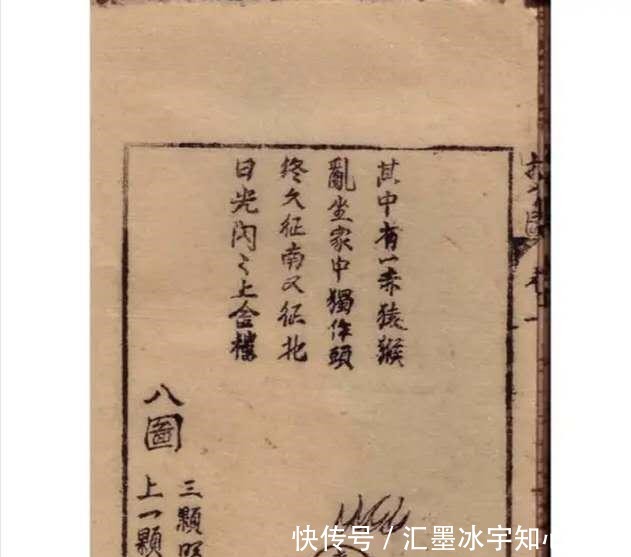 其中有一赤猿猴
亂坐家中獨作頭
終久征南又征北
日光閃々上金樓
三顆
上一顆
八圖
快传号 / 汇墨冰宇知